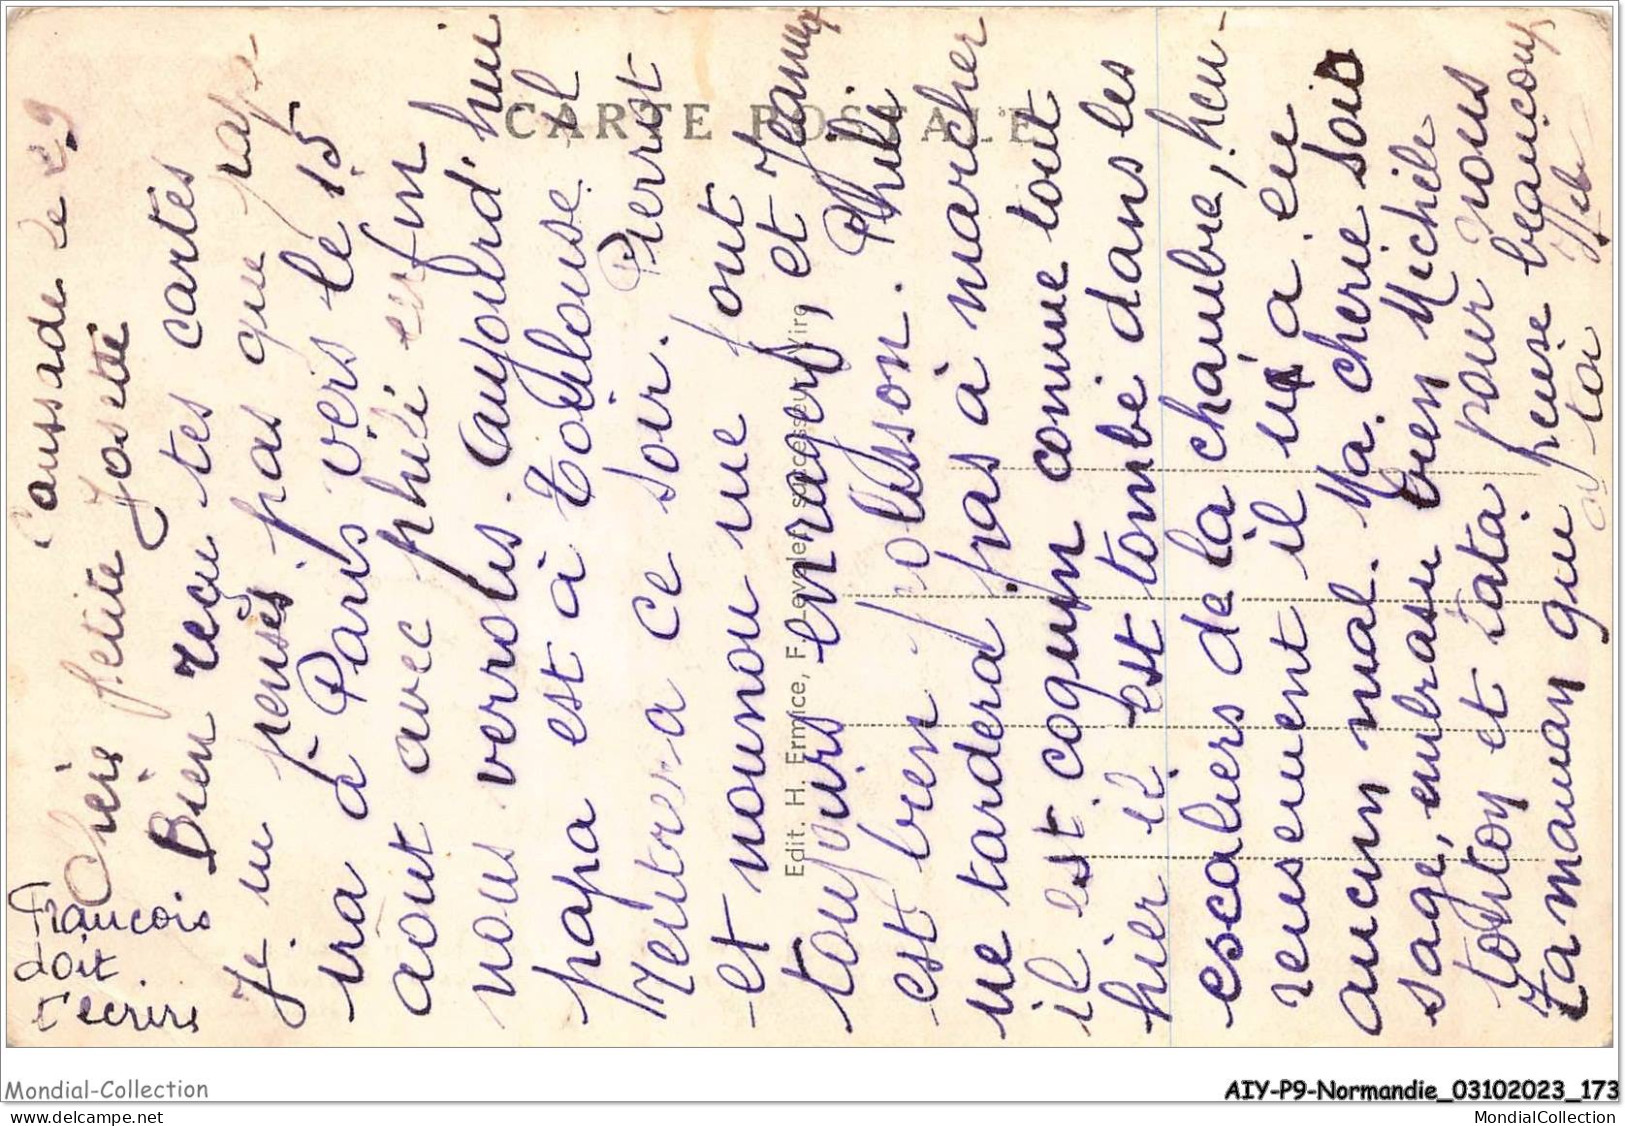 Caussade le 29
Chère petite Josette
Bien reçu tes cartes
Je ne pense pas que pap-
ira à Paris vers le 15
aout avec phili enfin
nous verrons. Aujourd'hui
papa est à Toulouse il
rentrera ce soir. Pierrot
et nounou ne font
toujours enrager, et Jeanny
est bien polisson. Phili
ne tardera pas à marcher
il est coquin comme tout
hier il est tombé dans les
escaliers de la chambre, heu-
reusement il n'a eu
aucun mal. Ma cherie sois
sage, embrasse bien Michèle
tonton et tata pour nous
Ta maman qui pense beaucoup
a toi
François
doit
t'ecrire
CARTE POSTALE
Edit. H. Ermice, F. Leyder, Successeur, Vire
Mondial-Collection
AIY-P9-Normandie_03102023_173
MondialCollection.net
MondialCollection